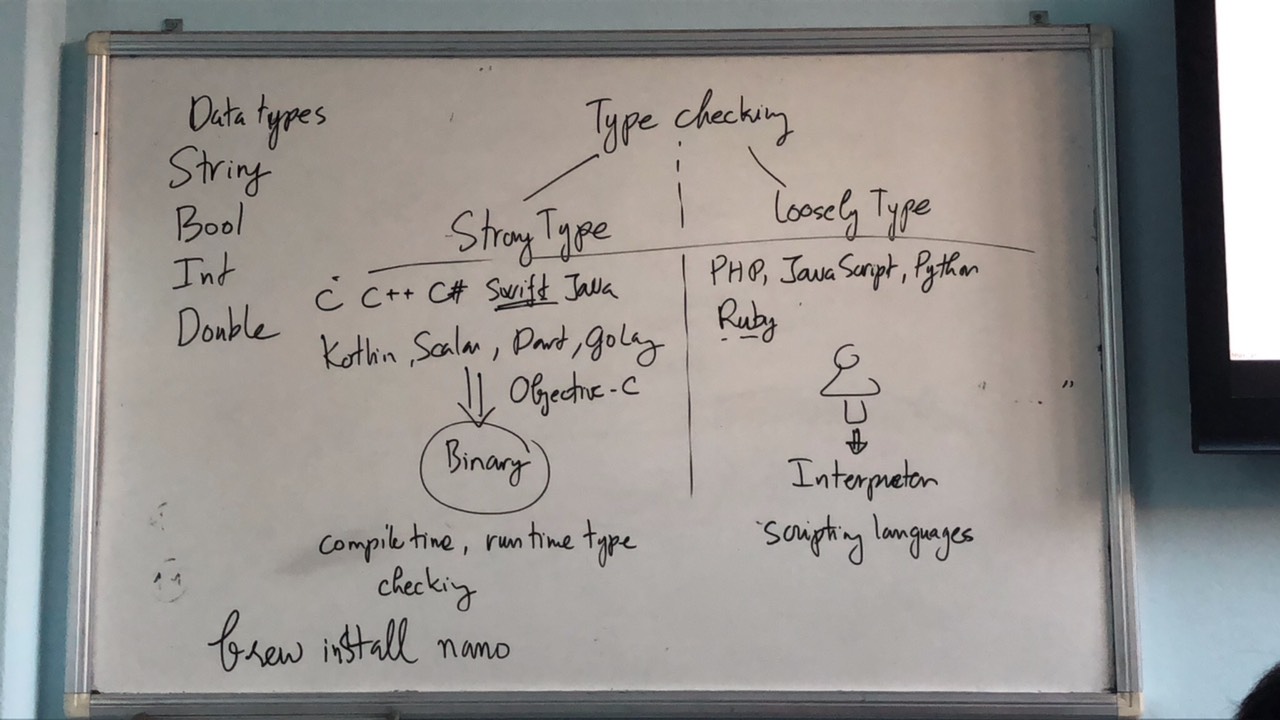 Data types
String
Bool
Int
Double
Type checking
Strong Type
C C++ C# Swift Java
Kotlin, Scalar, Dart, golang
Objective-C
Binary
compile time, runtime type
checking
Loosely Type
PHP, JavaScript, Python
Ruby
Interpreter
scripting languages
brew install nano